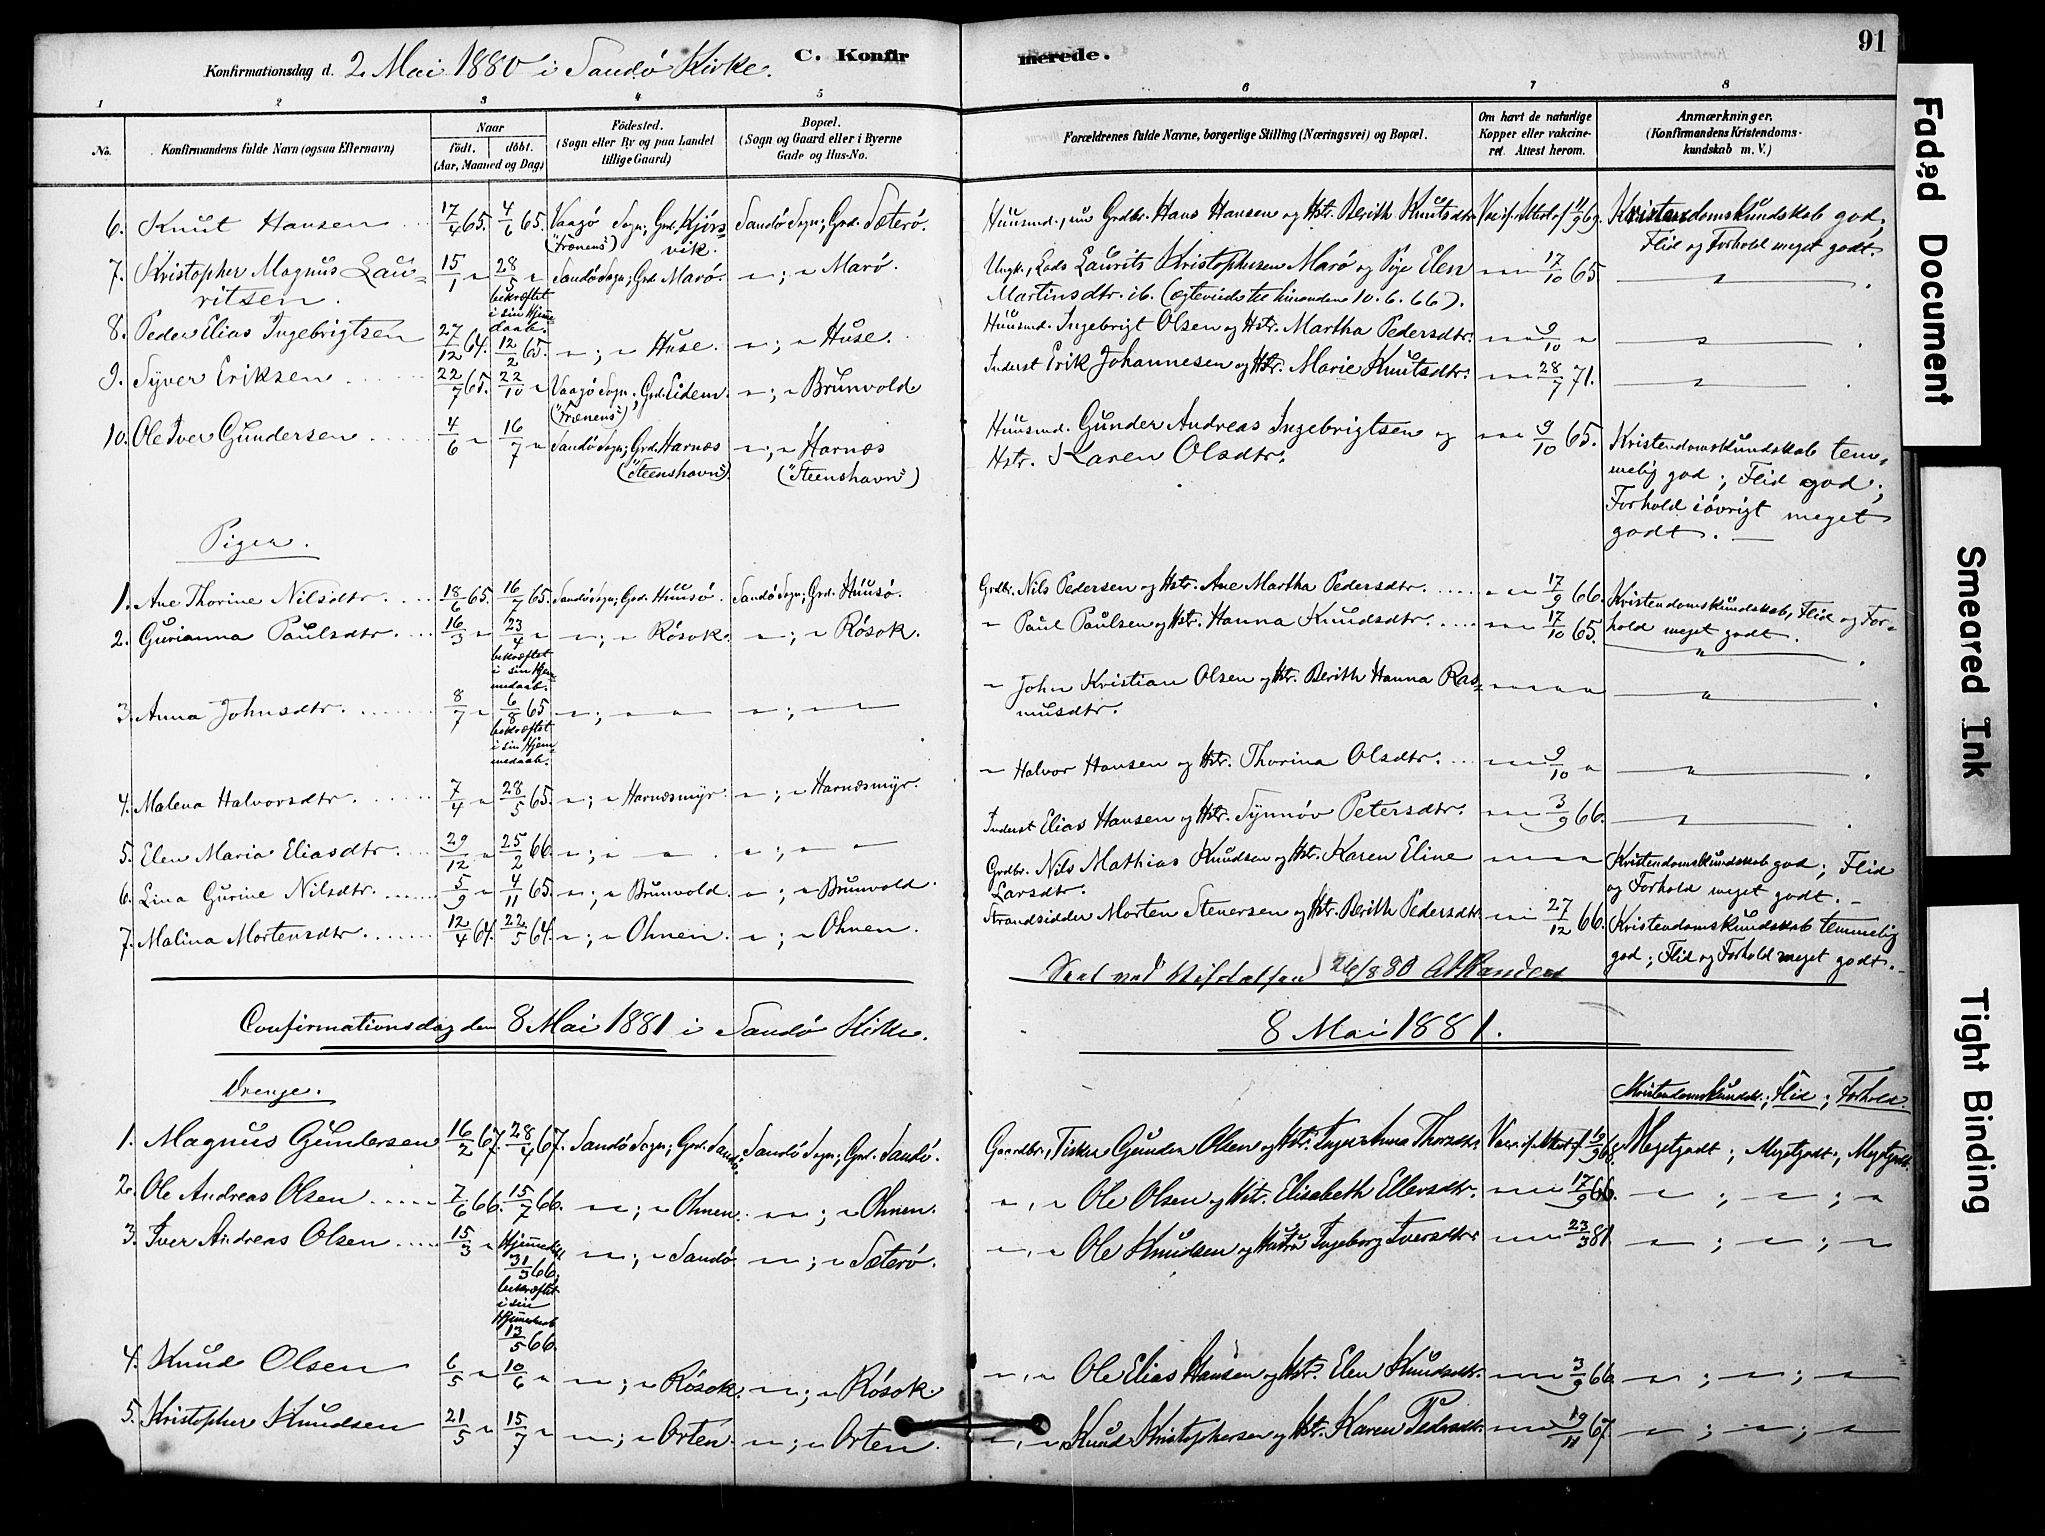 Konfirmationsdag d. 2 Mai 1880 i Sandö Kirke. C. Konfirmerede. 91
1 2 3 4 5 6 7 8
No. Konfirmandens fulde Navn (ogsaa Efternavn) Naar födt. döbt. (Aar, Maaned og Dag) Födested. (Sogn eller By og paa Landet tillige Gaard) Bopæl. (Sogn og Gaard eller i Byerne Gade og Hus-No.) Forældrenes fulde Navne, borgerlige Stilling (Næringsvei) og Bopæl. Om havt de naturlige Kopper eller vakcineret. Attest herom. Anmærkninger. (Konfirmandens Kristendomskundskab m. V.)
6. Knut Hansen 17/4 65. 4/6 65. Vaagö Sogn; Grd. Kjörsvik. ("Frænens") Sandö Sogn; Grd. Sæterö. Huusmd., nu Grdbr. Hans Hansen og Hstr. Berith Knutsdtr. Kristendomskundskab god; Flid og Forhold meget godt.
7. Kristopher Magnus Lauritsen. 15/1 " 28/5 " bekræftet i sin Hjemmedaab. Sandö Sogn; Grd. Marö. "; " Marö. Ungk., Lods Laurits Kristophersen Marö og Pige Elen Martinsdtr. ib. (ægteviede til hinanden 10.6.66). " " 17/10 65. "
8. Peder Elias Ingebrigtsen 27/12 64. 12/2 65. "; " Huse. "; " Huse. Huusmd. Ingebrigt Olsen og Hstr. Martha Pedersdtr. " " 9/10 " "
9. Syver Eriksen 22/7 65. 22/10 " Vaagö Sogn; Grd. Eidem. ("Frænens") "; " Brunvold. Inderst Erik Johannesen og Hstr. Marie Knutsdtr. " " 28/7 71. "
10. Ole Iver Gundersen 4/6 " 16/7 " Sandö Sogn; Grd. Harnæs ("Steenshavn") "; " Harnæs ("Steenshavn") Huusmd. Gunder Andreas Ingebrigtsen og Hstr. Karen Olsdtr. " " 9/10 65. Kristendomskundskab temmelig god; Flid god; Forhold iövrigt meget godt.
Piger.
1. Ane Thorine Nilsdtr. 18/6 65. 16/7 65. Sandö Sogn; Grd. Huusö. Sandö Sogn; Grd. Huusö. Grdbr. Nils Pedersen og Hstr. Ane Martha Pedersdtr. " " 17/9 66. Kristendomskundskab, Flid og Forhold meget godt.
2. Gurianna Paulsdtr. 16/3 " 23/4 " bekræftet i sin Hjemmedaab. "; " Rösok. "; " Rösok. " Paul Paulsen og Hstr. Hanna Knudsdtr. " " 17/10 65. "
3. Anna Johnsdtr. 8/7 " 6/8 65 bekræftet i sin Hjemmedaab. "; " " "; " " " John Kristian Olsen og Hstr. Berith Hanna Rasmusdtr. " " " " "
4. Malena Halvorsdtr. 7/4 " 28/5 65. "; " Harnæsmyr. "; " Harnæsmyr. " Halvor Hansen og Hstr. Thorina Olsdtr. " " 9/10 " "
5. Elen Maria Eliasdtr. 29/12 " 25/2 66. "; " " "; " " Inderst Elias Hansen og Hstr. Synnöv Petersdtr. " " 3/9 66. "
6. Lina Gurine Nilsdtr. 5/9 " 4/11 65. "; " Brunvold. "; " Brunvold. Grdbr. Nils Mathias Knudsen og Hstr. Karen Eline Larsdtr. " " " " Kristendomskundskab god; Flid og Forhold meget godt.
7. Malina Mortensdtr. 12/4 64. 22/5 64. "; " Ohnen. "; " Ohnen. Strandsidder Morten Stenersen og Hstr. Berith Pedersdtr. " " 27/12 66. Kristendomskundskab temmelig god; Flid og Forhold meget godt.
26/8 80
Confirmationsdag den 8 Mai 1881 i Sandö Kirke. 8 Mai 1881.
Drenge. Kristendomskundsk.; Flid; Forhold.
1. Magnus Gundersen 16/2 67. 28/4 67. Sandö Sogn; Grd. Sandö. Sandö Sogn; Grd. Sandö. Gaardbr., Fisker Gunder Olsen og Hstr. Inger Anna Meget godt; Meget godt; Meget godt.
2. Ole Andreas Olsen 7/6 66. 15/7 66. " "; " Ohnen. " "; " Ohnen. ", " Ole Olsen og Hstr. Elisabeth Ellersdtr. " " 17/9 66. "; "; "
3. Iver Andreas Olsen 15/3 " Hjemmed. 31/3 66. bekræftet i sin Hjemmedaab 13/5 66. " "; " Sandö. " "; " Sæterö. ", " Ole Knudsen og Hustru Ingeborg Iversdtr. " " 23/3 81 "; "; "
4. Knud Olsen 6/5 " 10/6 " " "; " Rösok. " "; " Rösok. ", " Ole Elias Hansen og Hstr. Elen Knudsdtr. " " 3/9 66. "; "; "
5. Kristopher Knudsen 21/5 " 15/7 " " "; " Orten. " "; " Orten. ", " Knud Kristophersen og Hstr. Karen Pedersdtr. " " 19/11 67 "; "; "
Faded Document
Smeared Ink
Tight Binding